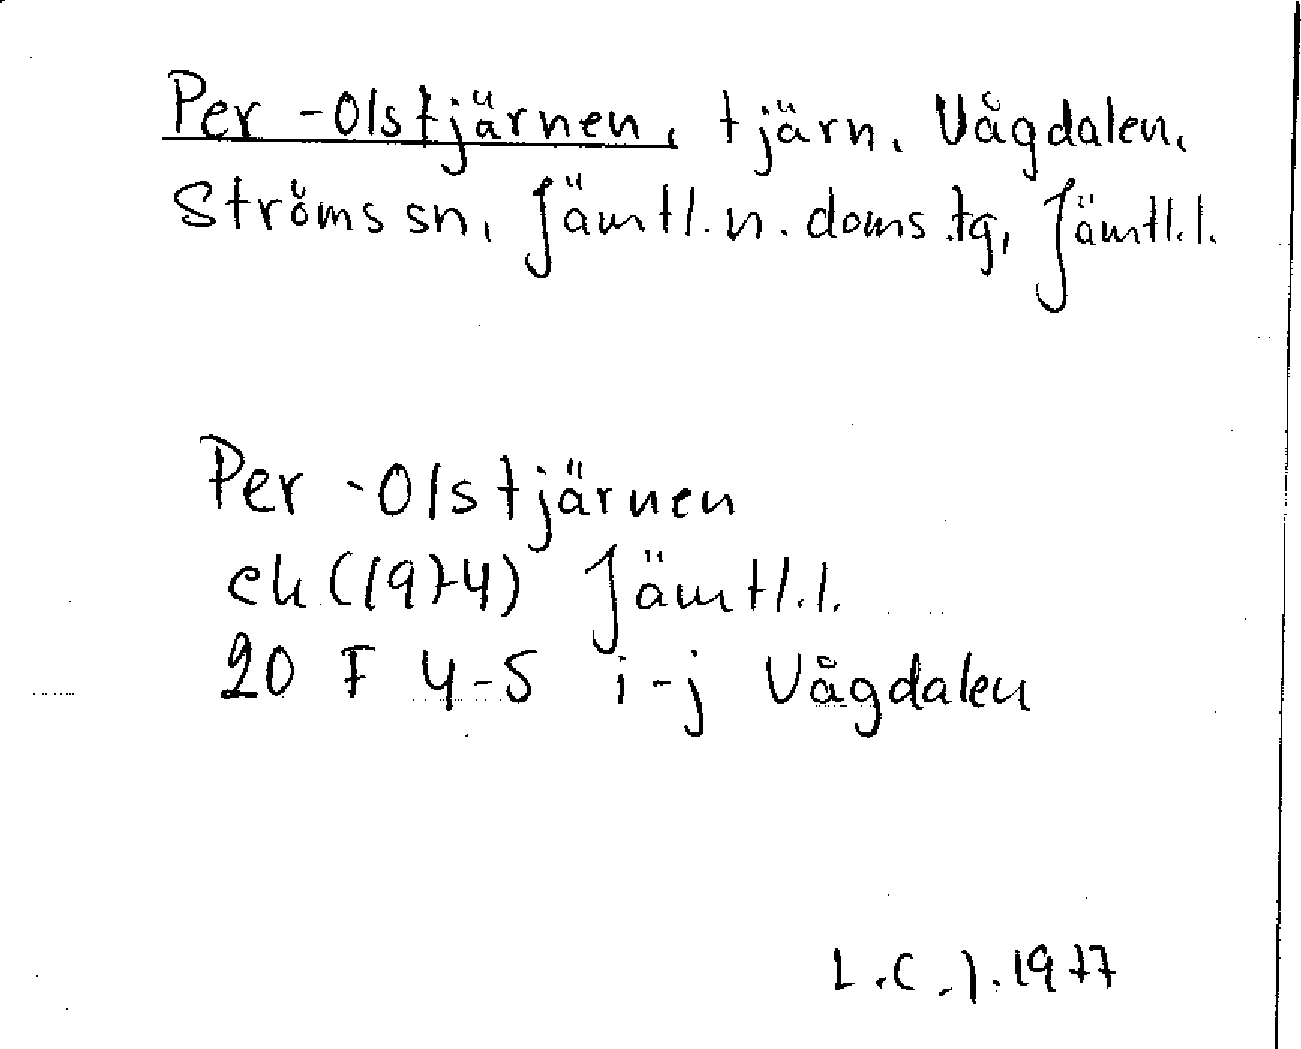 Per-Olstjärnen, tjärn, Vågdalen,
Ströms sn, Jämtl.n.doms.tg, Jämtl.l.
Per-Olstjärnen
ek (1974) Jämtl.l.
20 F 4-5 i-j Vågdalen
L.C.J. 1977